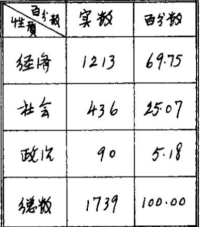 百分数 性質 实数 百分数
经济 1213 69.75
社会 436 25.07
政治 90 5.18
總数 1739 100.00